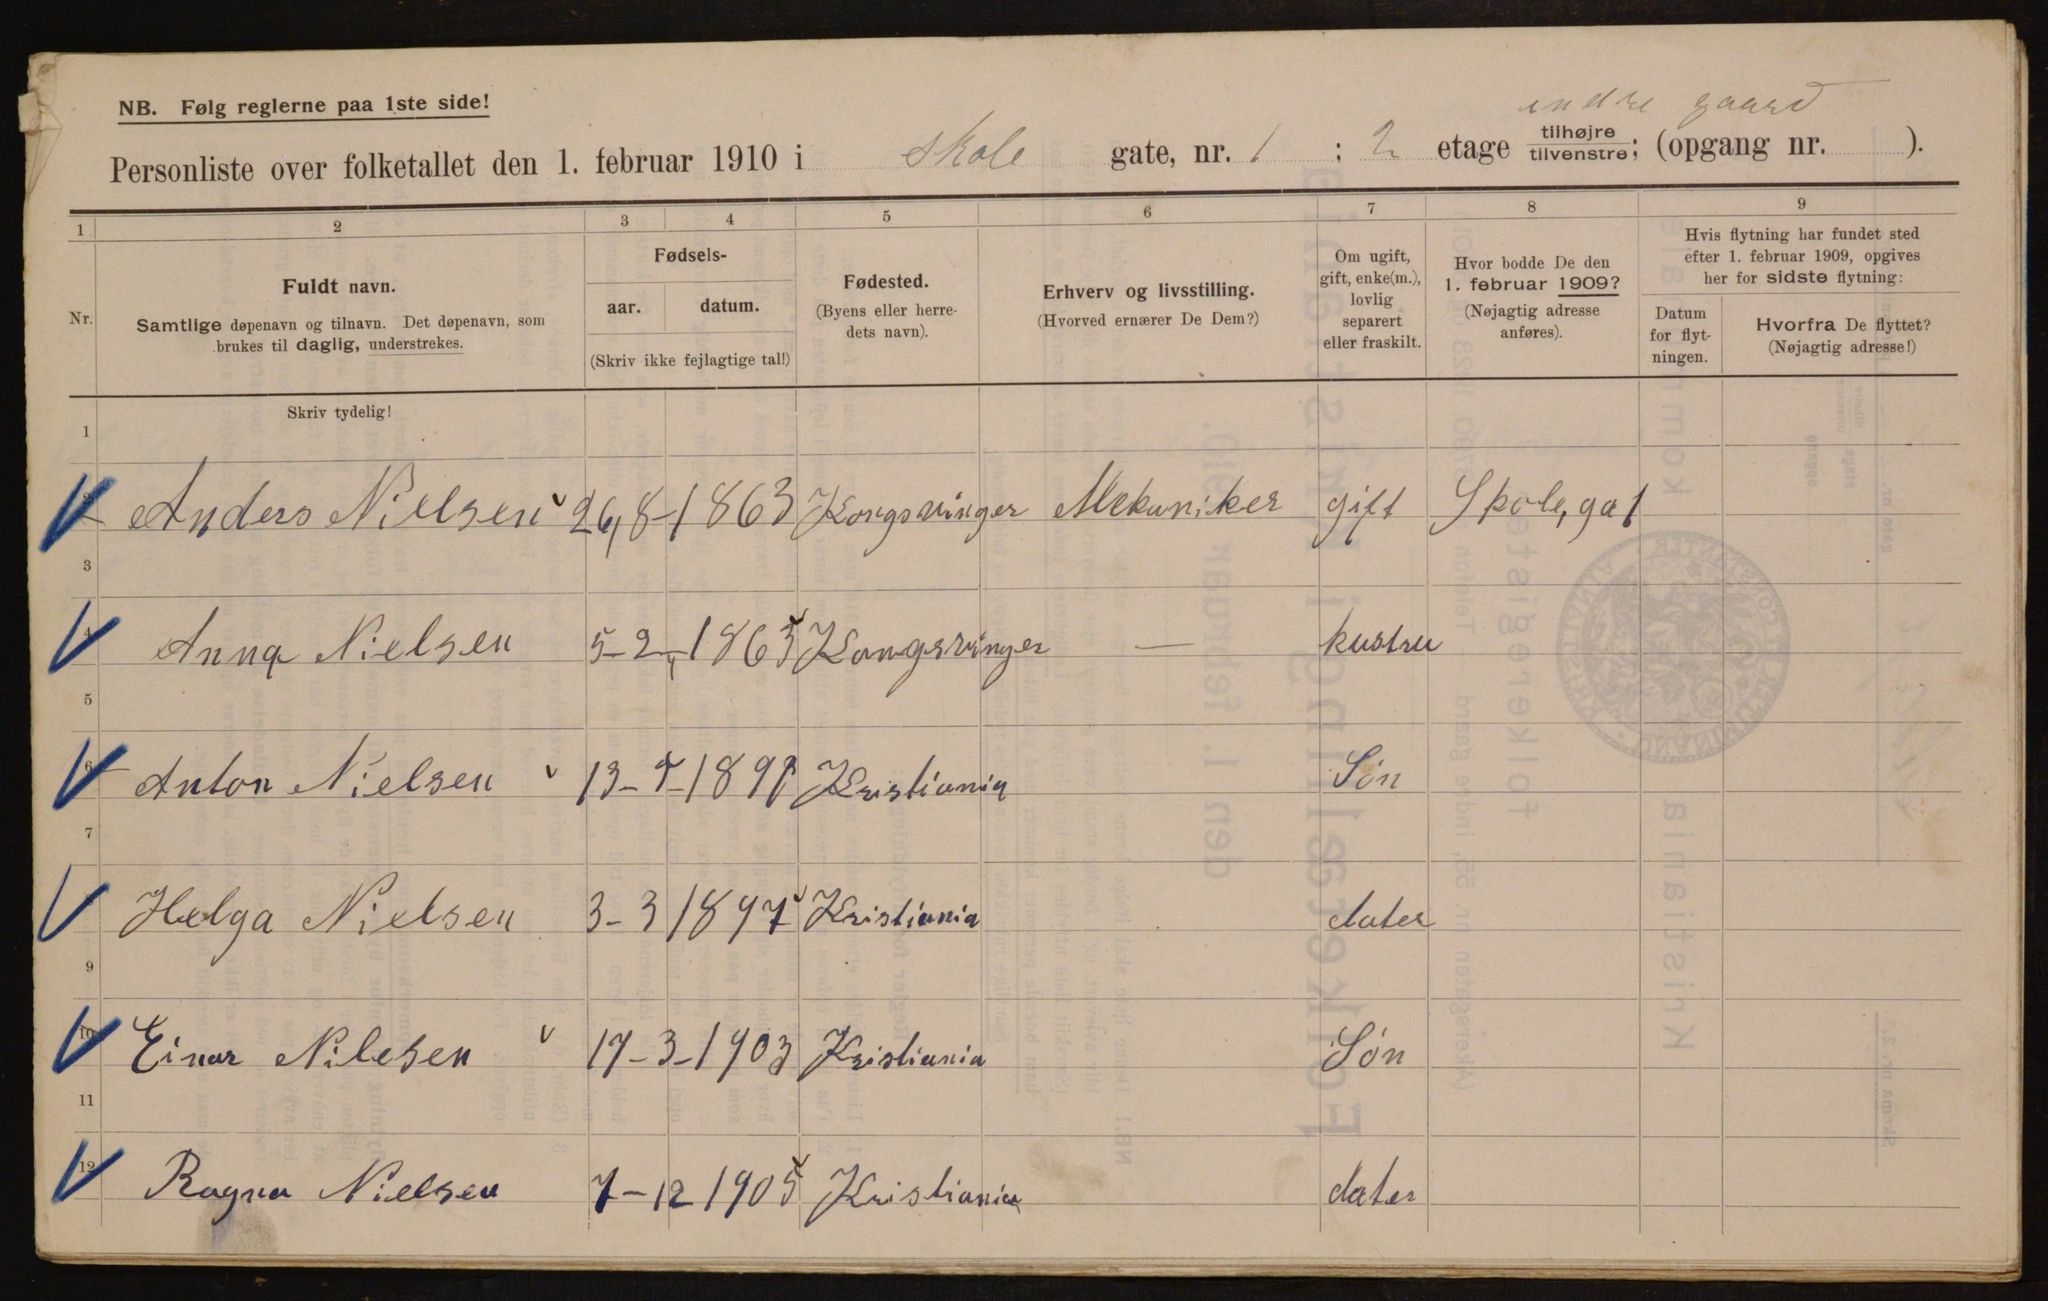 NB. Følg reglerne paa 1ste side!
indre gaard
Personliste over folketallet den 1. februar 1910 i Skole gate, nr. 1 ; 2 etage tilhøjre/tilvenstre; (opgang nr. ).
1 2 3 4 5 6 7 8 9
Nr.
Fuldt navn.
Samtlige døpenavn og tilnavn. Det døpenavn, som
brukes til daglig, understrekes.
Fødsels-
aar. datum.
(Skriv ikke fejlagtige tal!)
Fødested.
(Byens eller herre-
dets navn).
Erhverv og livsstilling.
(Hvorved ernærer De Dem?)
Om ugift,
gift, enke(m.),
lovlig
separert
eller fraskilt.
Hvor bodde De den
1. februar 1909?
(Nøjagtig adresse
anføres).
Hvis flytning har fundet sted
efter 1. februar 1909, opgives
her for sidste flytning:
Datum
for flyt-
ningen.
Hvorfra De flyttet?
(Nøjagtig adresse!)
Skriv tydelig!
1
2 Anders Nielsen 26,8-1863 Kongsvinger Mekaniker gift Skole,ga 1
3
4 Anna Nielsen 5-2,-1865 Kongsvinger — kustru
5
6 Anton Nielsen 13- -189 Kristiania Søn
7
Helga Nielsen 3-3 1897 Kristiania dater
9
10 Einar Nilesen 17-3-1903 Kristiania Søn
11
12 Ragna Nielsen 7-12 1905 Kristiania dater